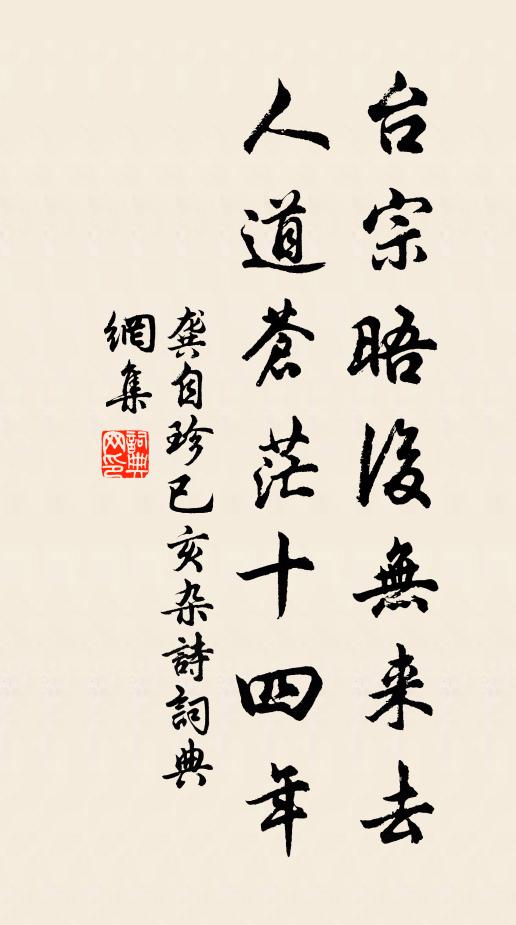 台宗晤後無来去
人道蒼茫十四年
龔自珍已亥杂詩詞典
網集
詞典网印